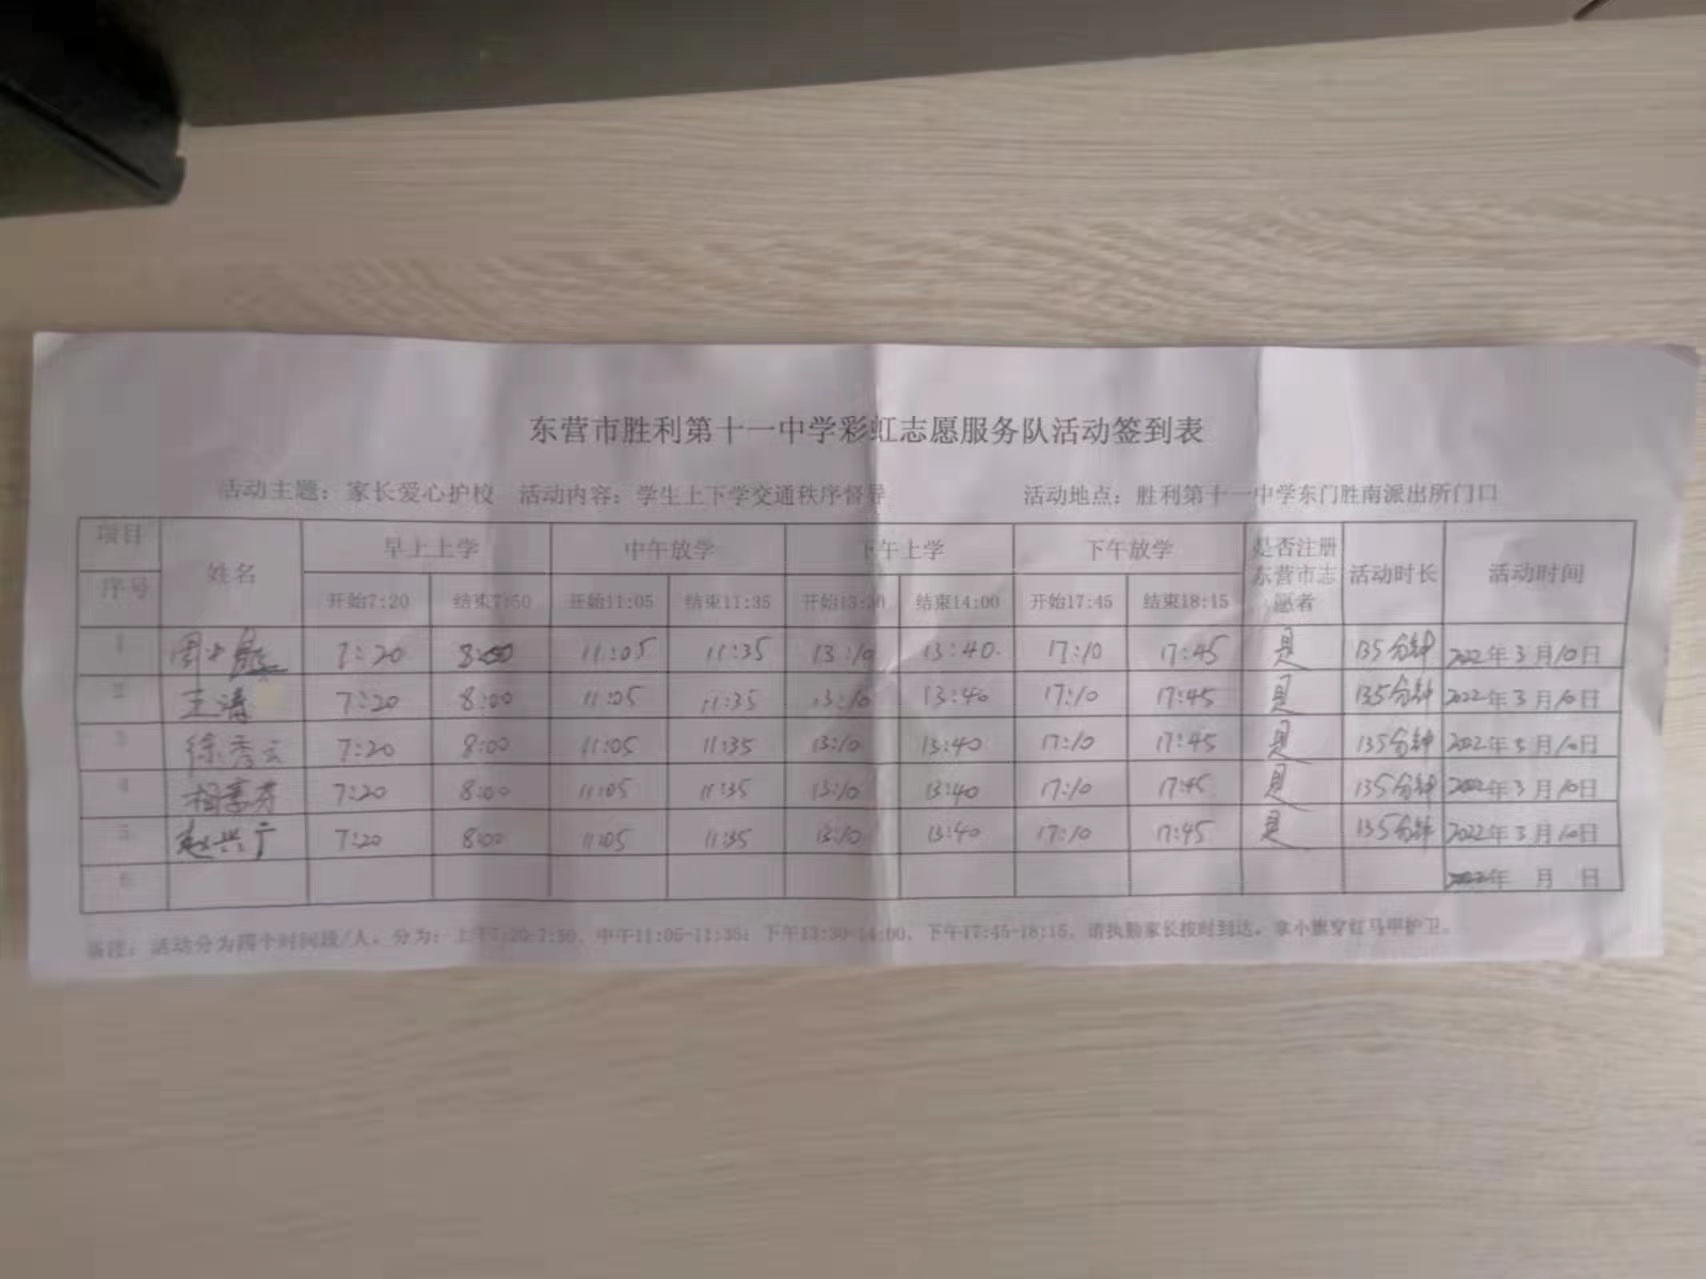 东营市胜利第十一中学彩虹志愿服务队活动签到表
活动主题：家长爱心护校 活动内容：学生上下学交通秩序督导 活动地点：胜利第十一中学东门胜南派出所门口
项目 序号 姓名 早上上学 中午放学 下午上学 下午放学 是否注册东营市志愿者 活动时长 活动时间
开始7:20 结束7:50 开始11:05 结束11:35 开始13:30 结束14:00 开始17:45 结束18:15
1 7:20 8:00 11:05 11:35 13:10 13:40 17:10 17:45 是 135分钟 2022年3月10日
2 王涛 7:20 8:00 11:05 11:35 13:10 13:40 17:10 17:45 是 135分钟 2022年3月10日
3 徐秀云 7:20 8:00 11:05 11:35 13:10 13:40 17:10 17:45 是 135分钟 2022年3月10日
4 7:20 8:00 11:05 11:35 13:10 13:40 17:10 17:45 是 135分钟 2022年3月10日
5 赵兴广 7:20 8:00 11:05 11:35 13:10 13:40 17:10 17:45 是 135分钟 2022年3月10日
6 2022年 月 日
备注：活动分为四个时间段/人，分为：上午7:20-7:50，中午11:05-11:35；下午13:30-14:00，下午17:45-18:15，请执勤家长按时到达，拿小旗穿红马甲护卫。